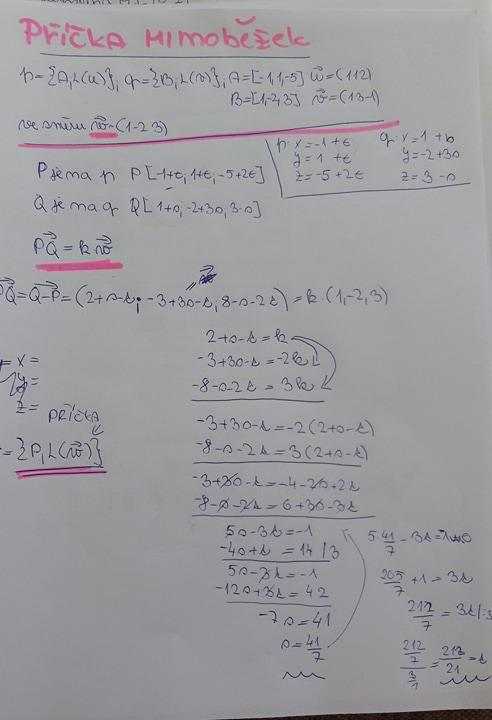 PŘÍČKA MIMOBĚŽEK
p={A,L(u)}, q={B,L(v)}, A=[-1,1,-5] u⃗=(112)
B=[1,-2,3] v⃗=(13-1)
ve směru w⃗=(1-2 3)
p: x=-1+t
y=1+t
z=-5+2t
q: x=1+s
y=-2+3s
z=3-s
P je na p P[-1+t,1+t,-5+2t]
Q je na q Q[1+s,-2+3s,3-s]
PQ⃗=k w⃗
PQ⃗=Q-P=(2+s-t; -3+3s-t, 8-s-2t)=k.(1,-2,3)
2+s-t=k
-3+3s-t=-2k
-8-s-2t=3k
x=
y=
z=
PŘÍČKA
={P,L(w⃗)}
-3+3s-t=-2(2+s-t)
-8-s-2t=3(2+s-t)
-3+3s-t=-4-2s+2t
-8-s-2t=6+3s-3t
5s-3t=-1
-4s+t=14/3
5s-3t=-1
-12s+3t=42
-7s=41
s=41/7
5 41/7-3t=-1
205/7+1=3t
212/7=3t
212/7 / 3/1 = 212/21=t